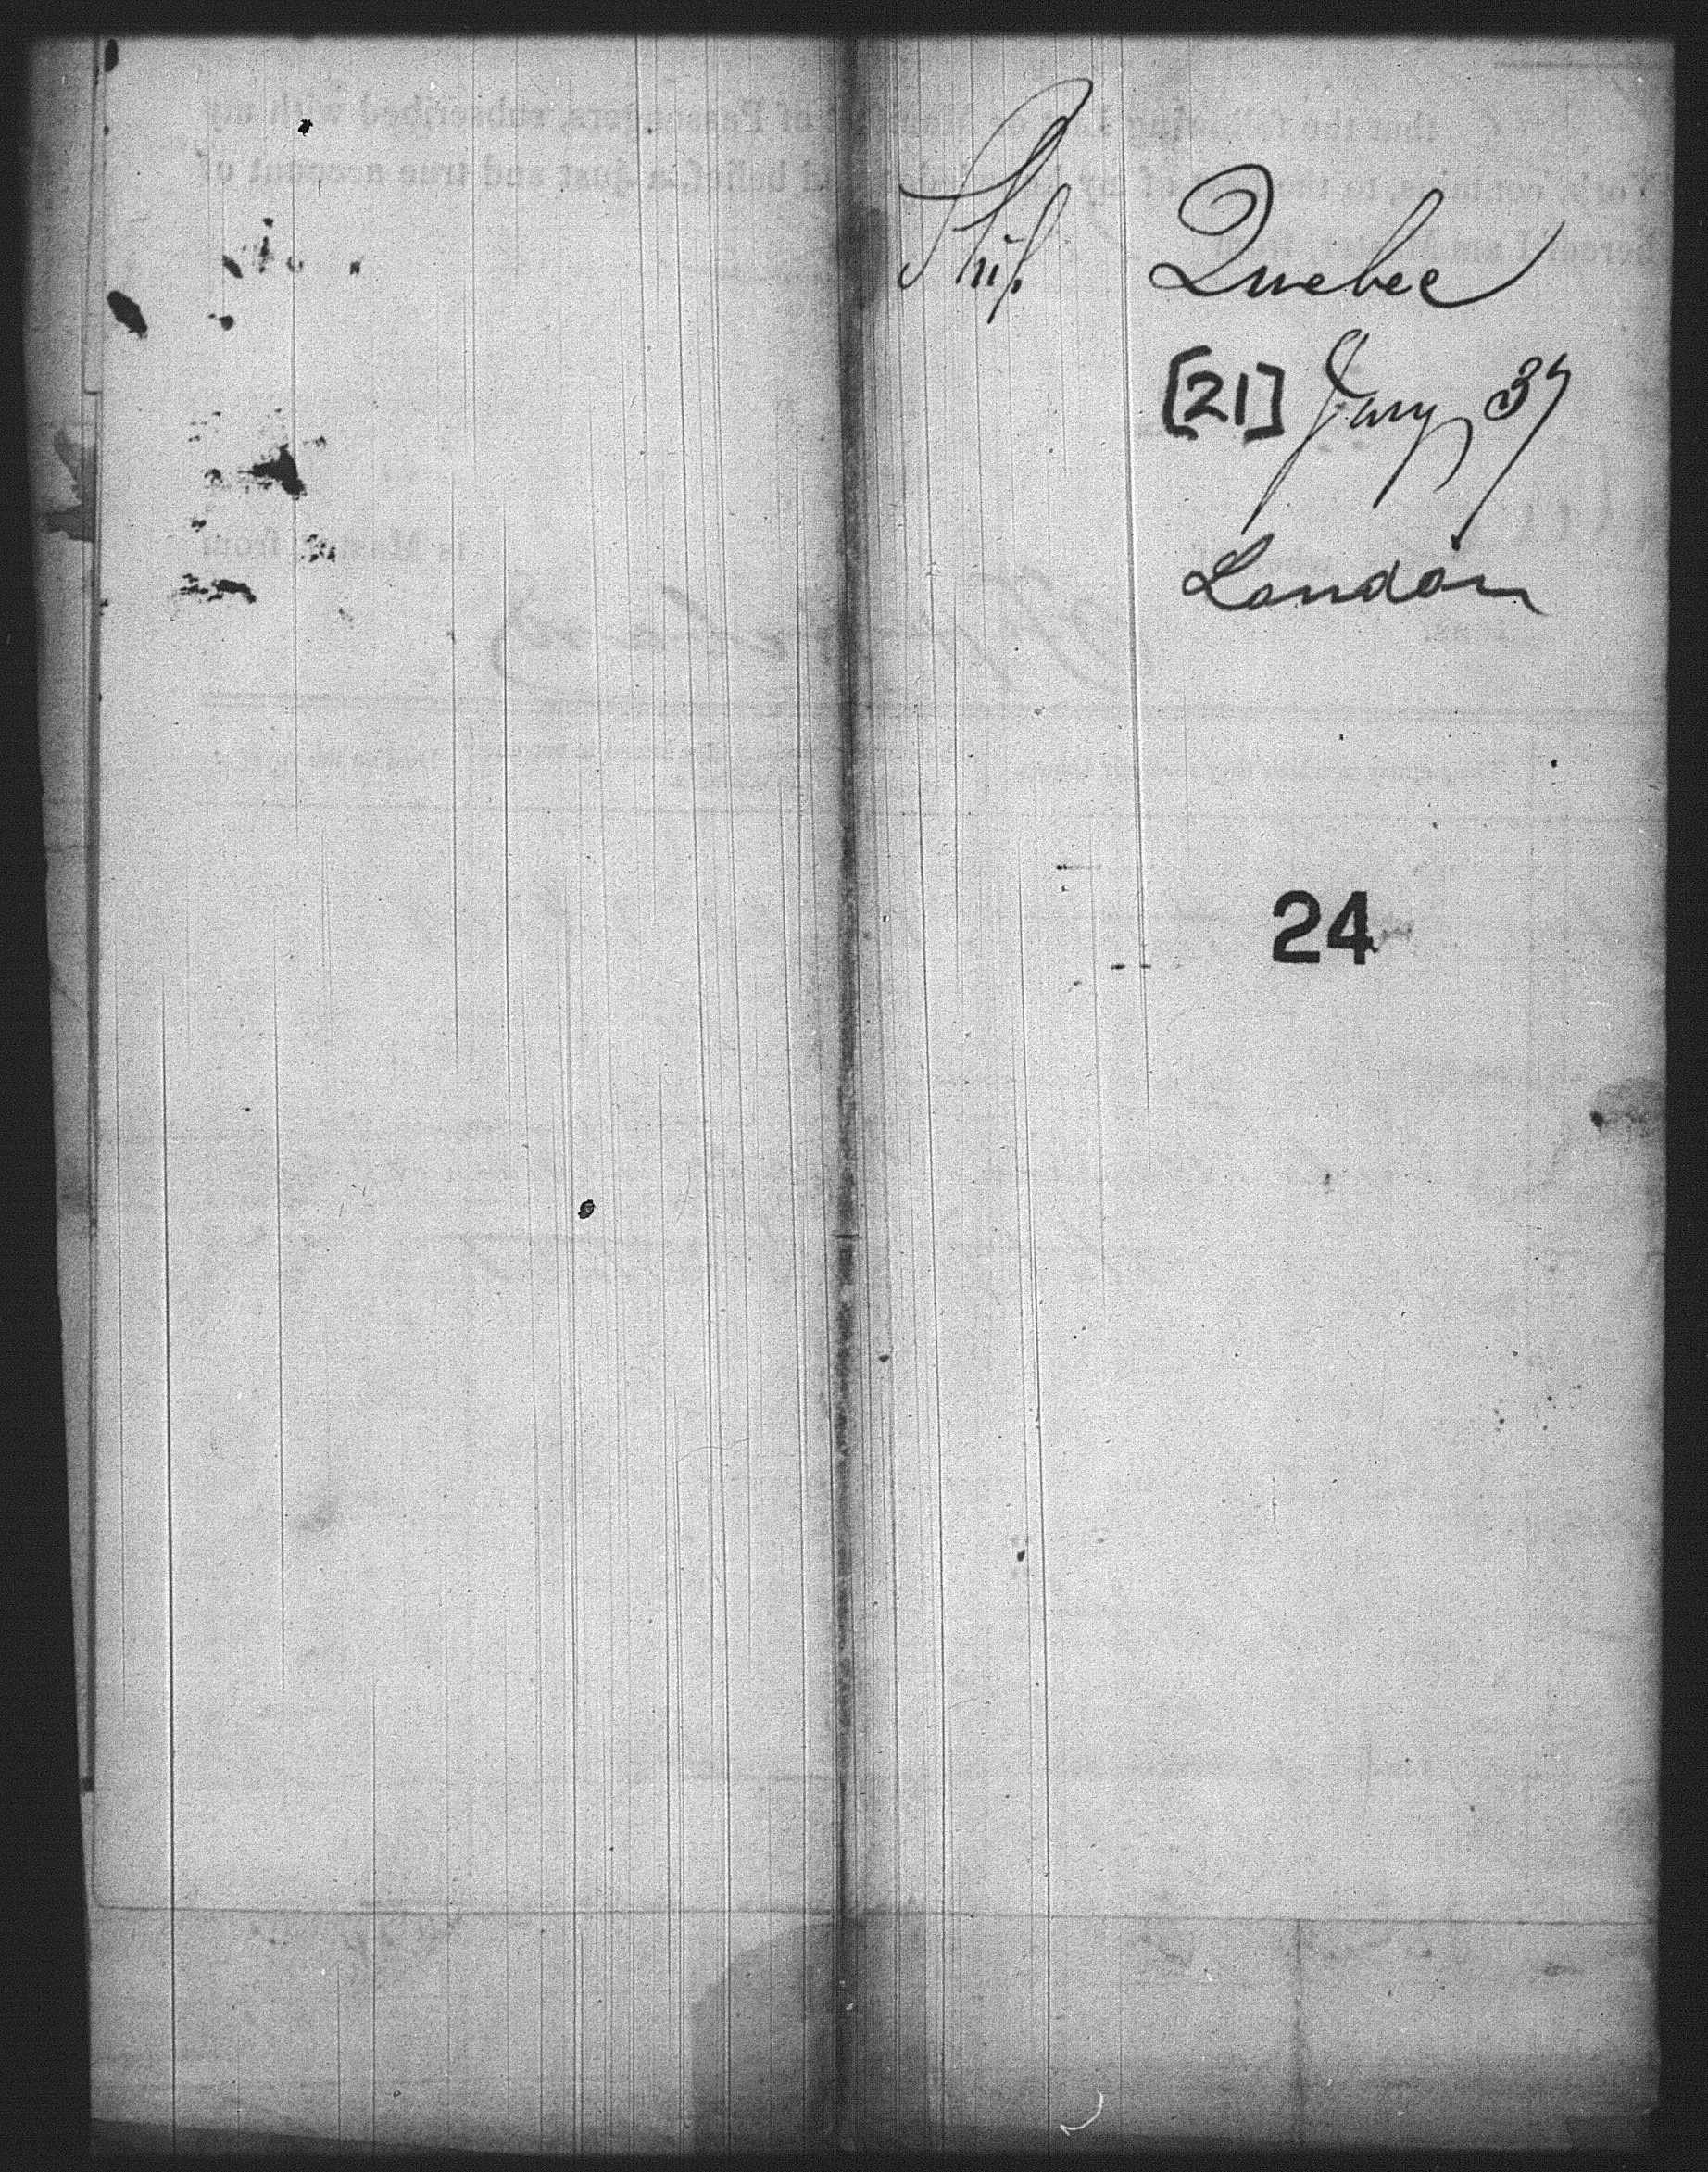 Ship Quebec
[21] Jany 37
London
24